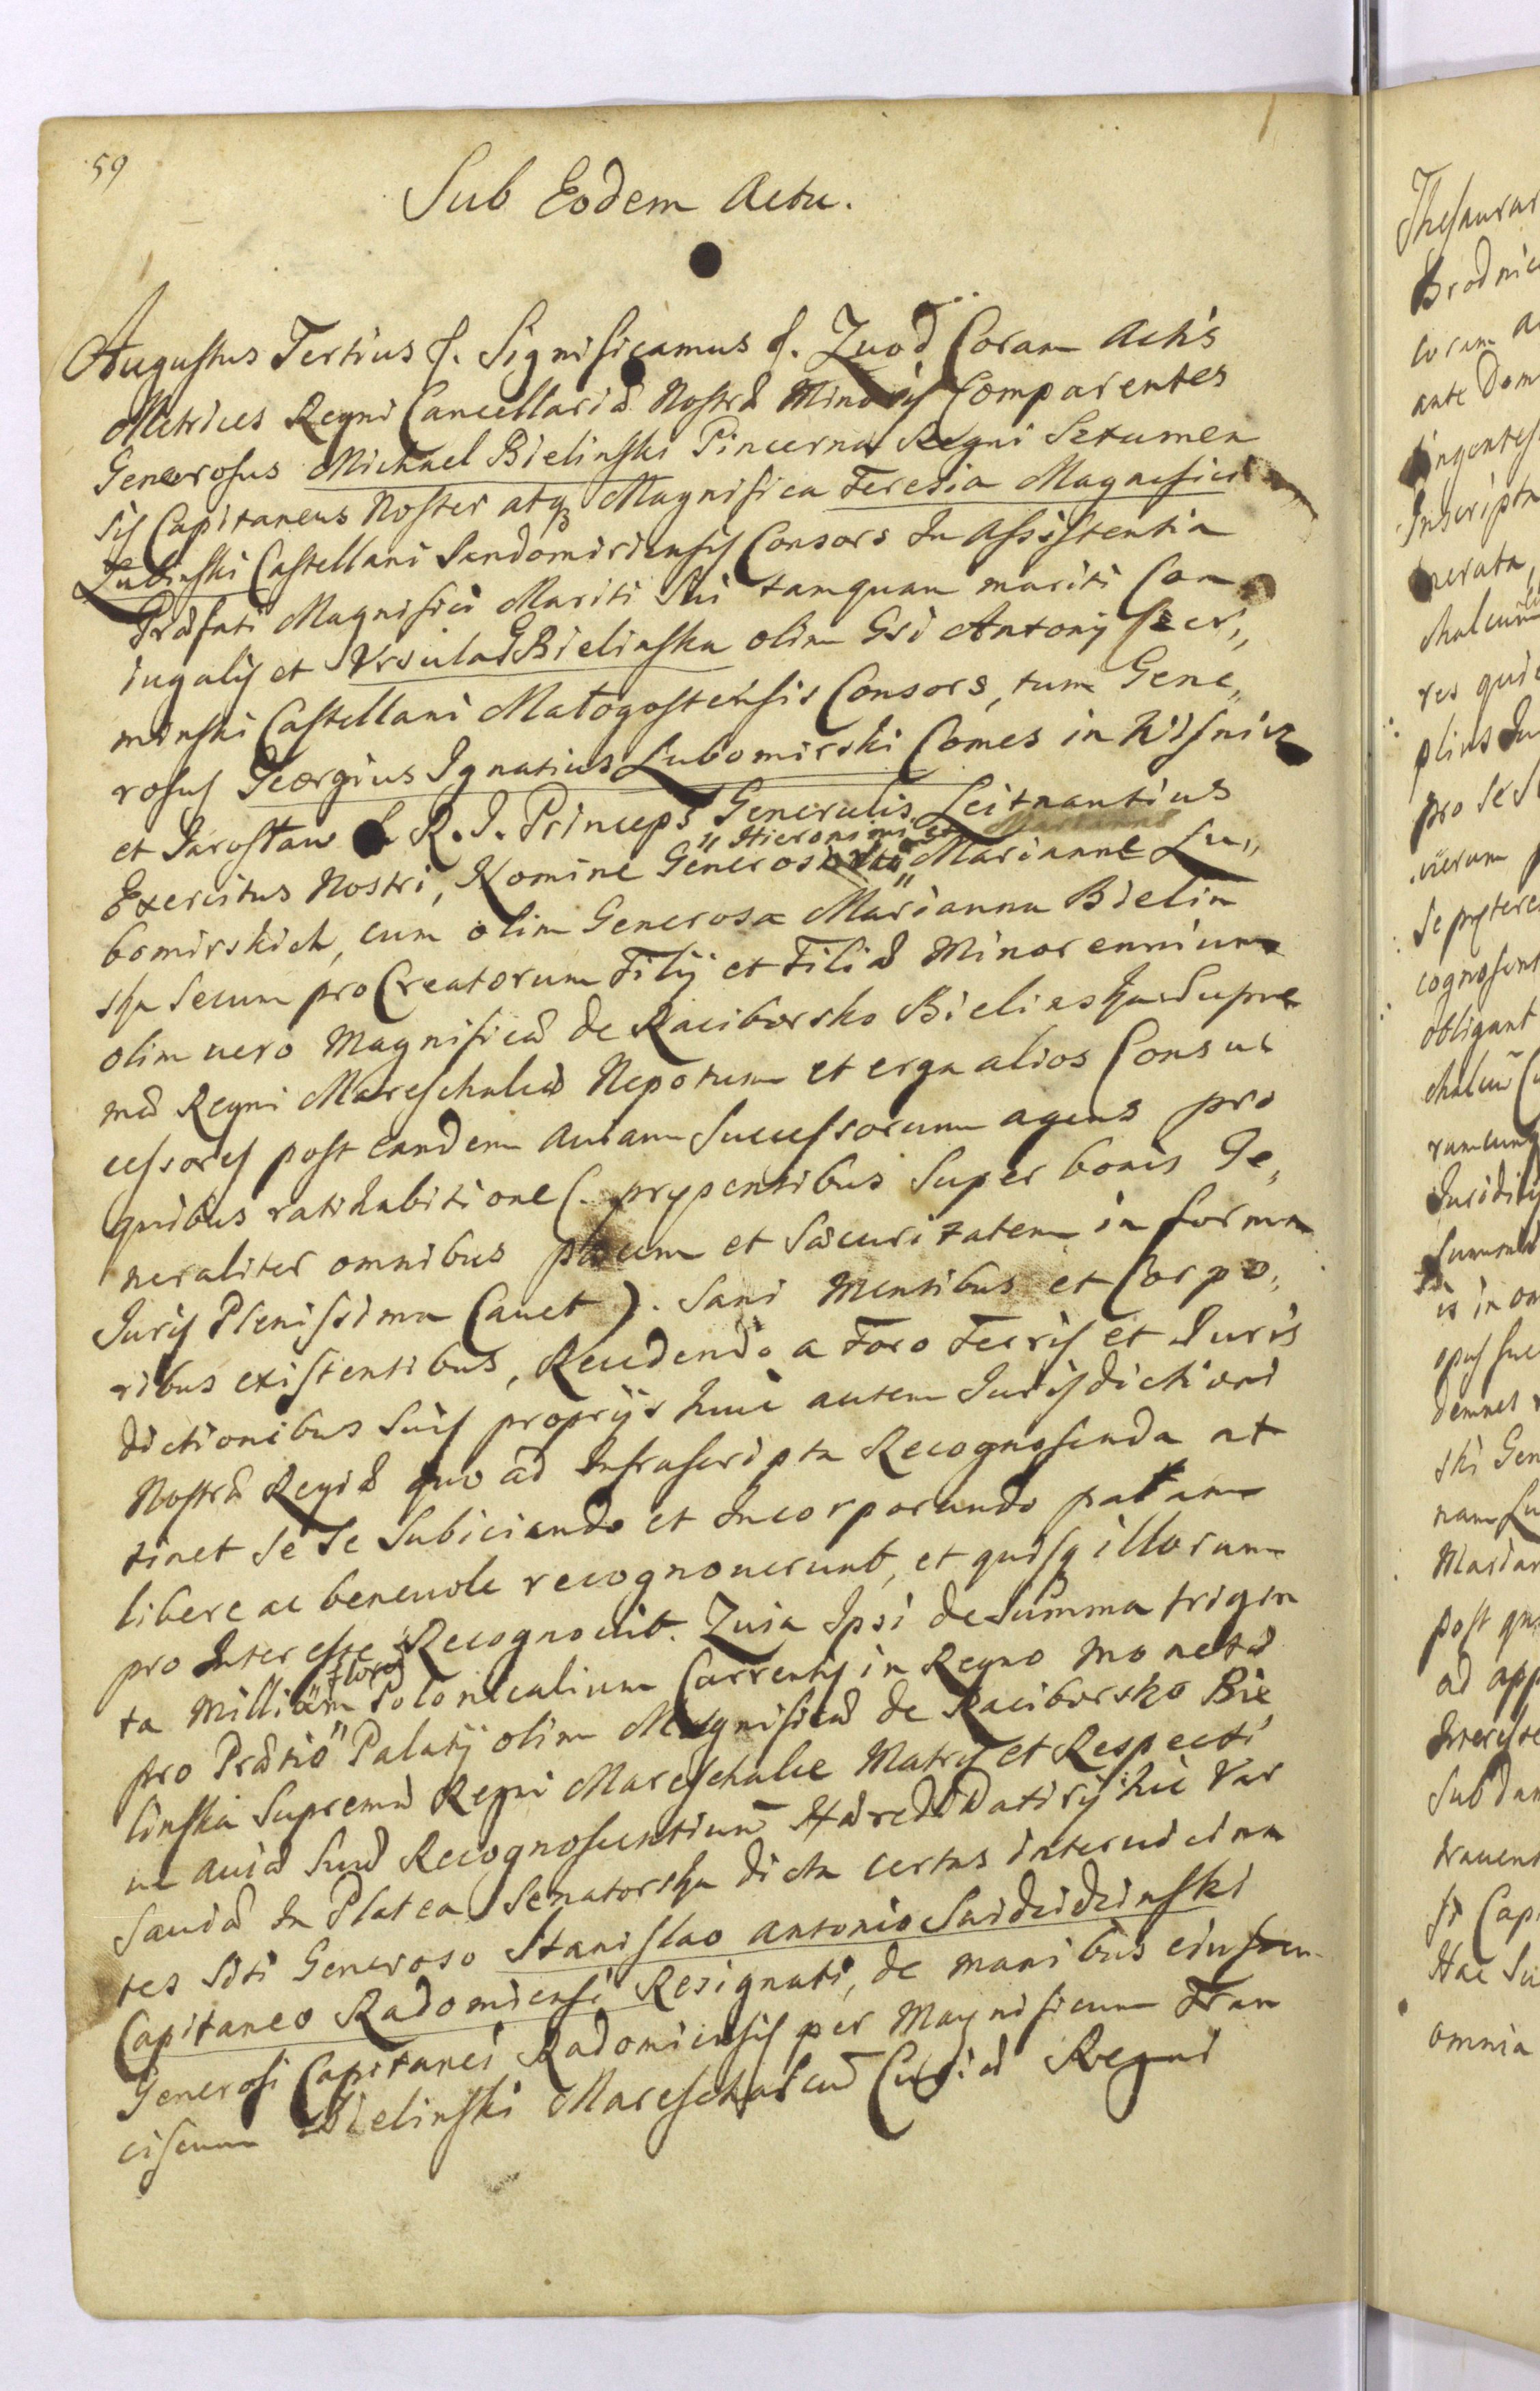 59
Sub Eodem Actu.
Augustus Tertius f. Significamus f. Quod Coram Actis
Metrices Regni Cancellariæ Nostræ Minoris Comparentes
Generosus Michael Bielinski Pincerna Regni Sztumen
sis Capitaneus Noster atq3 Magnifica Teresia Magnifici
Lubinski Castellani Sandomiriensis Consors In Assistentia
Præfati Magnifici Mariti Sui tamquam mariti Con
iugalis et Ursula Bielinska olim Gsi Antonij Sier„
minski Castellani Małogostensis Consors, tum Gene„
rosus Georgius Ignatius Lubomirski Comes in Wisnicz
et Jarosław S. R. I. Princeps Generalis Leitnantius
Exercitus Nostri, Nomine Generosi „ Hieronimi et „ Marianne Lu„
bomirskich, cum olim Generosa Marianna Bielin
ska Secum proCreatorum Filij et Filiæ Minorennium
olim vero Magnificæ de Raciborsko Bielinska Supre
mæ Regni Mareschalcæ Nepotum et erga alios Consuc
cessores post eandem Auiam Successorum agens pro
quibus ratihabitione (. præsentibus Super bonis Ge„
neraliter omnibus et Sæcuritatem in forma
Juris Plenissima Cauet ). Sani Mentibus et Corpo„
ribus existentibus, Recedendo a Foro Terris et Juris
dictionibus Suis proprijs huic autem Jurisdictioni
Nostræ Regiæ quo ad Infrascripta Recognoscenda at
tinet Se Se Subiciendo et Incorporando palam
libere ac beneuole recognouerunt, et quisq illorum
pro Interesse Recognouit. Quia Ipsi de Summa trigin
ta Millium floros Polonicalium Currentis in Regno Monetæ
pro Prætio Palatij olim Magnificæ de Raciborsko Bie
linska Supremæ Regni Mareschalce Matris et Respecti
ue auiæ Suæ Recognoscentium Hæreditatirij hic Var
sauiæ In Platea Senatorska dicta certas interuicina
tes Siti Generoso Stanislao Antonio Swidzidzinski
Capitaneo Radomiensi Resignati, de manibus eiusdem
Generosi Capitanei Radomiensis per Magnificum Fran
ciscum Bielinski Mareschalcum Curiæ Regni
Thesaurar
Brodnic
coram a
ante Dom
ingentes
Inscripta
nerata,
res quid
plius Iu
pro Se S
uerum
cognoscent
obligant
is in om
demnes
ski Gen
nam Lu
Marian
post qu
ad app
Interesse
Sub dam
si Cap
Hac Su
omnia